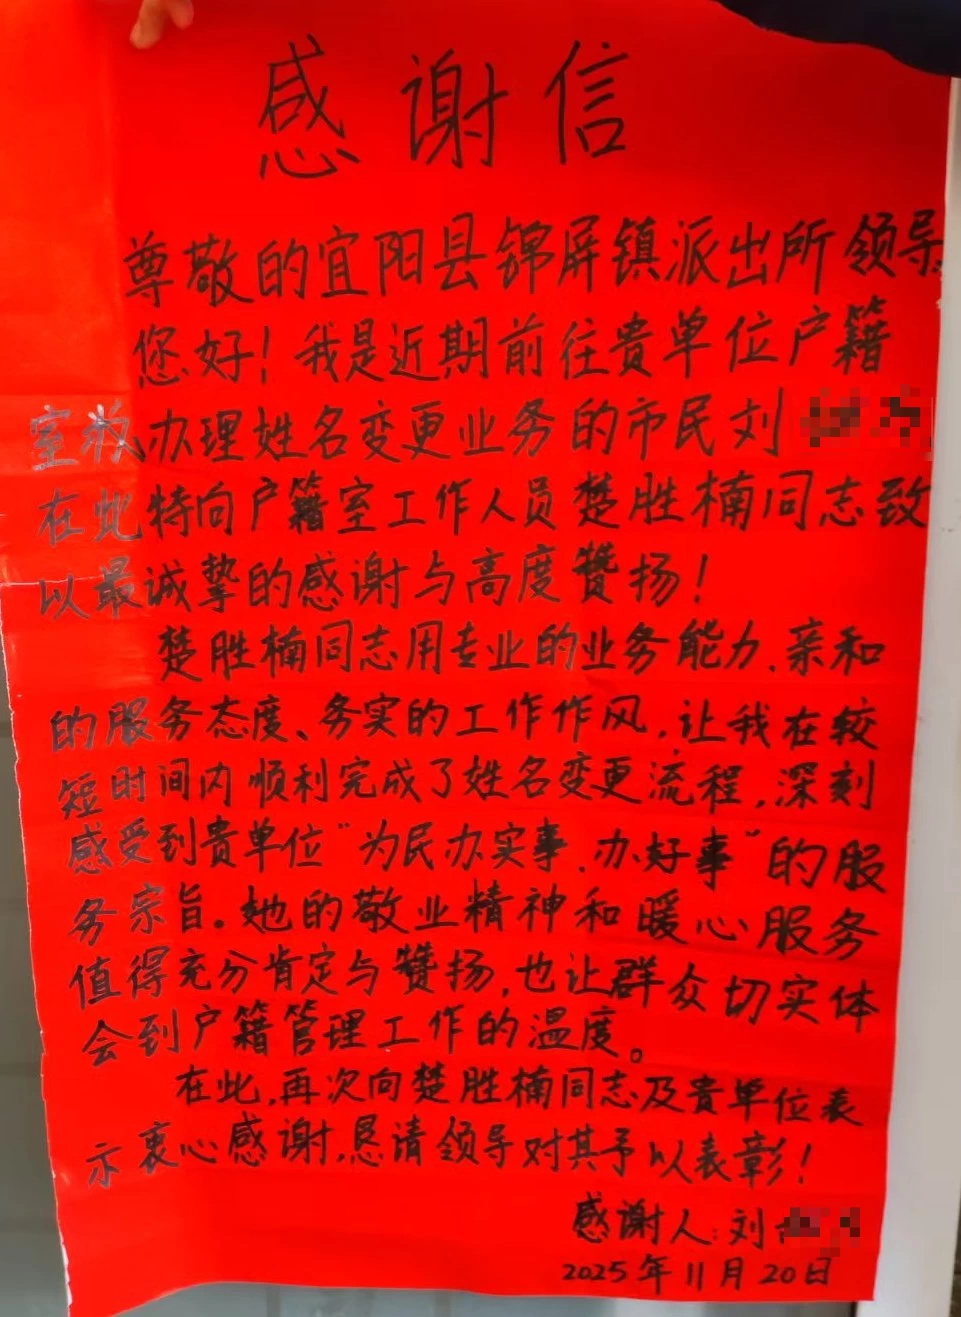 感谢信
尊敬的宜阳县锦屏镇派出所领导
您好！我是近期前往贵单位户籍
室办理姓名变更业务的市民刘
在此特向户籍室工作人员楚胜楠同志致
以最诚挚的感谢与高度赞扬！
楚胜楠同志用专业的业务能力、亲和
的服务态度、务实的工作作风，让我在较
短时间内顺利完成了姓名变更流程，深刻
感受到贵单位“为民办实事、办好事”的服
务宗旨。她的敬业精神和暖心服务
值得充分肯定与赞扬，也让群众切实体
会到户籍管理工作的温度。
在此，再次向楚胜楠同志及贵单位表
示衷心感谢，恳请领导对其予以表彰！
感谢人：刘
2025年11月20日